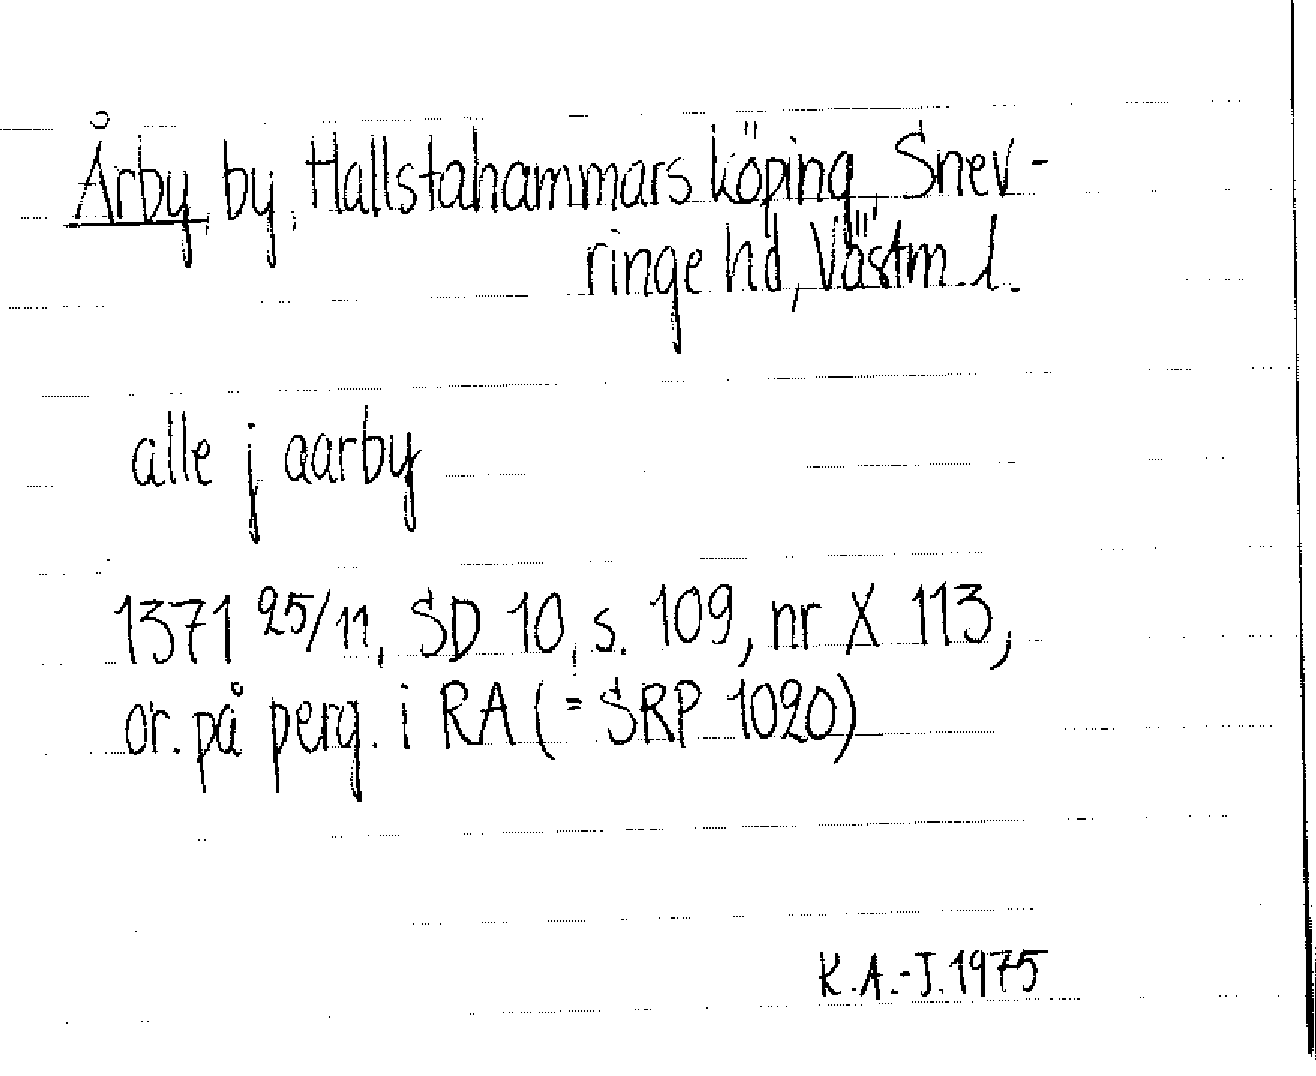 Årby by, Hallstahammars köping, Snev-
ringe hd, Västm. l.
alle j aarby
1371 25/11, SD 10, s. 109, nr X 113,
or. på perg. i RA (= SRP 1020)
K.A.-J. 1975